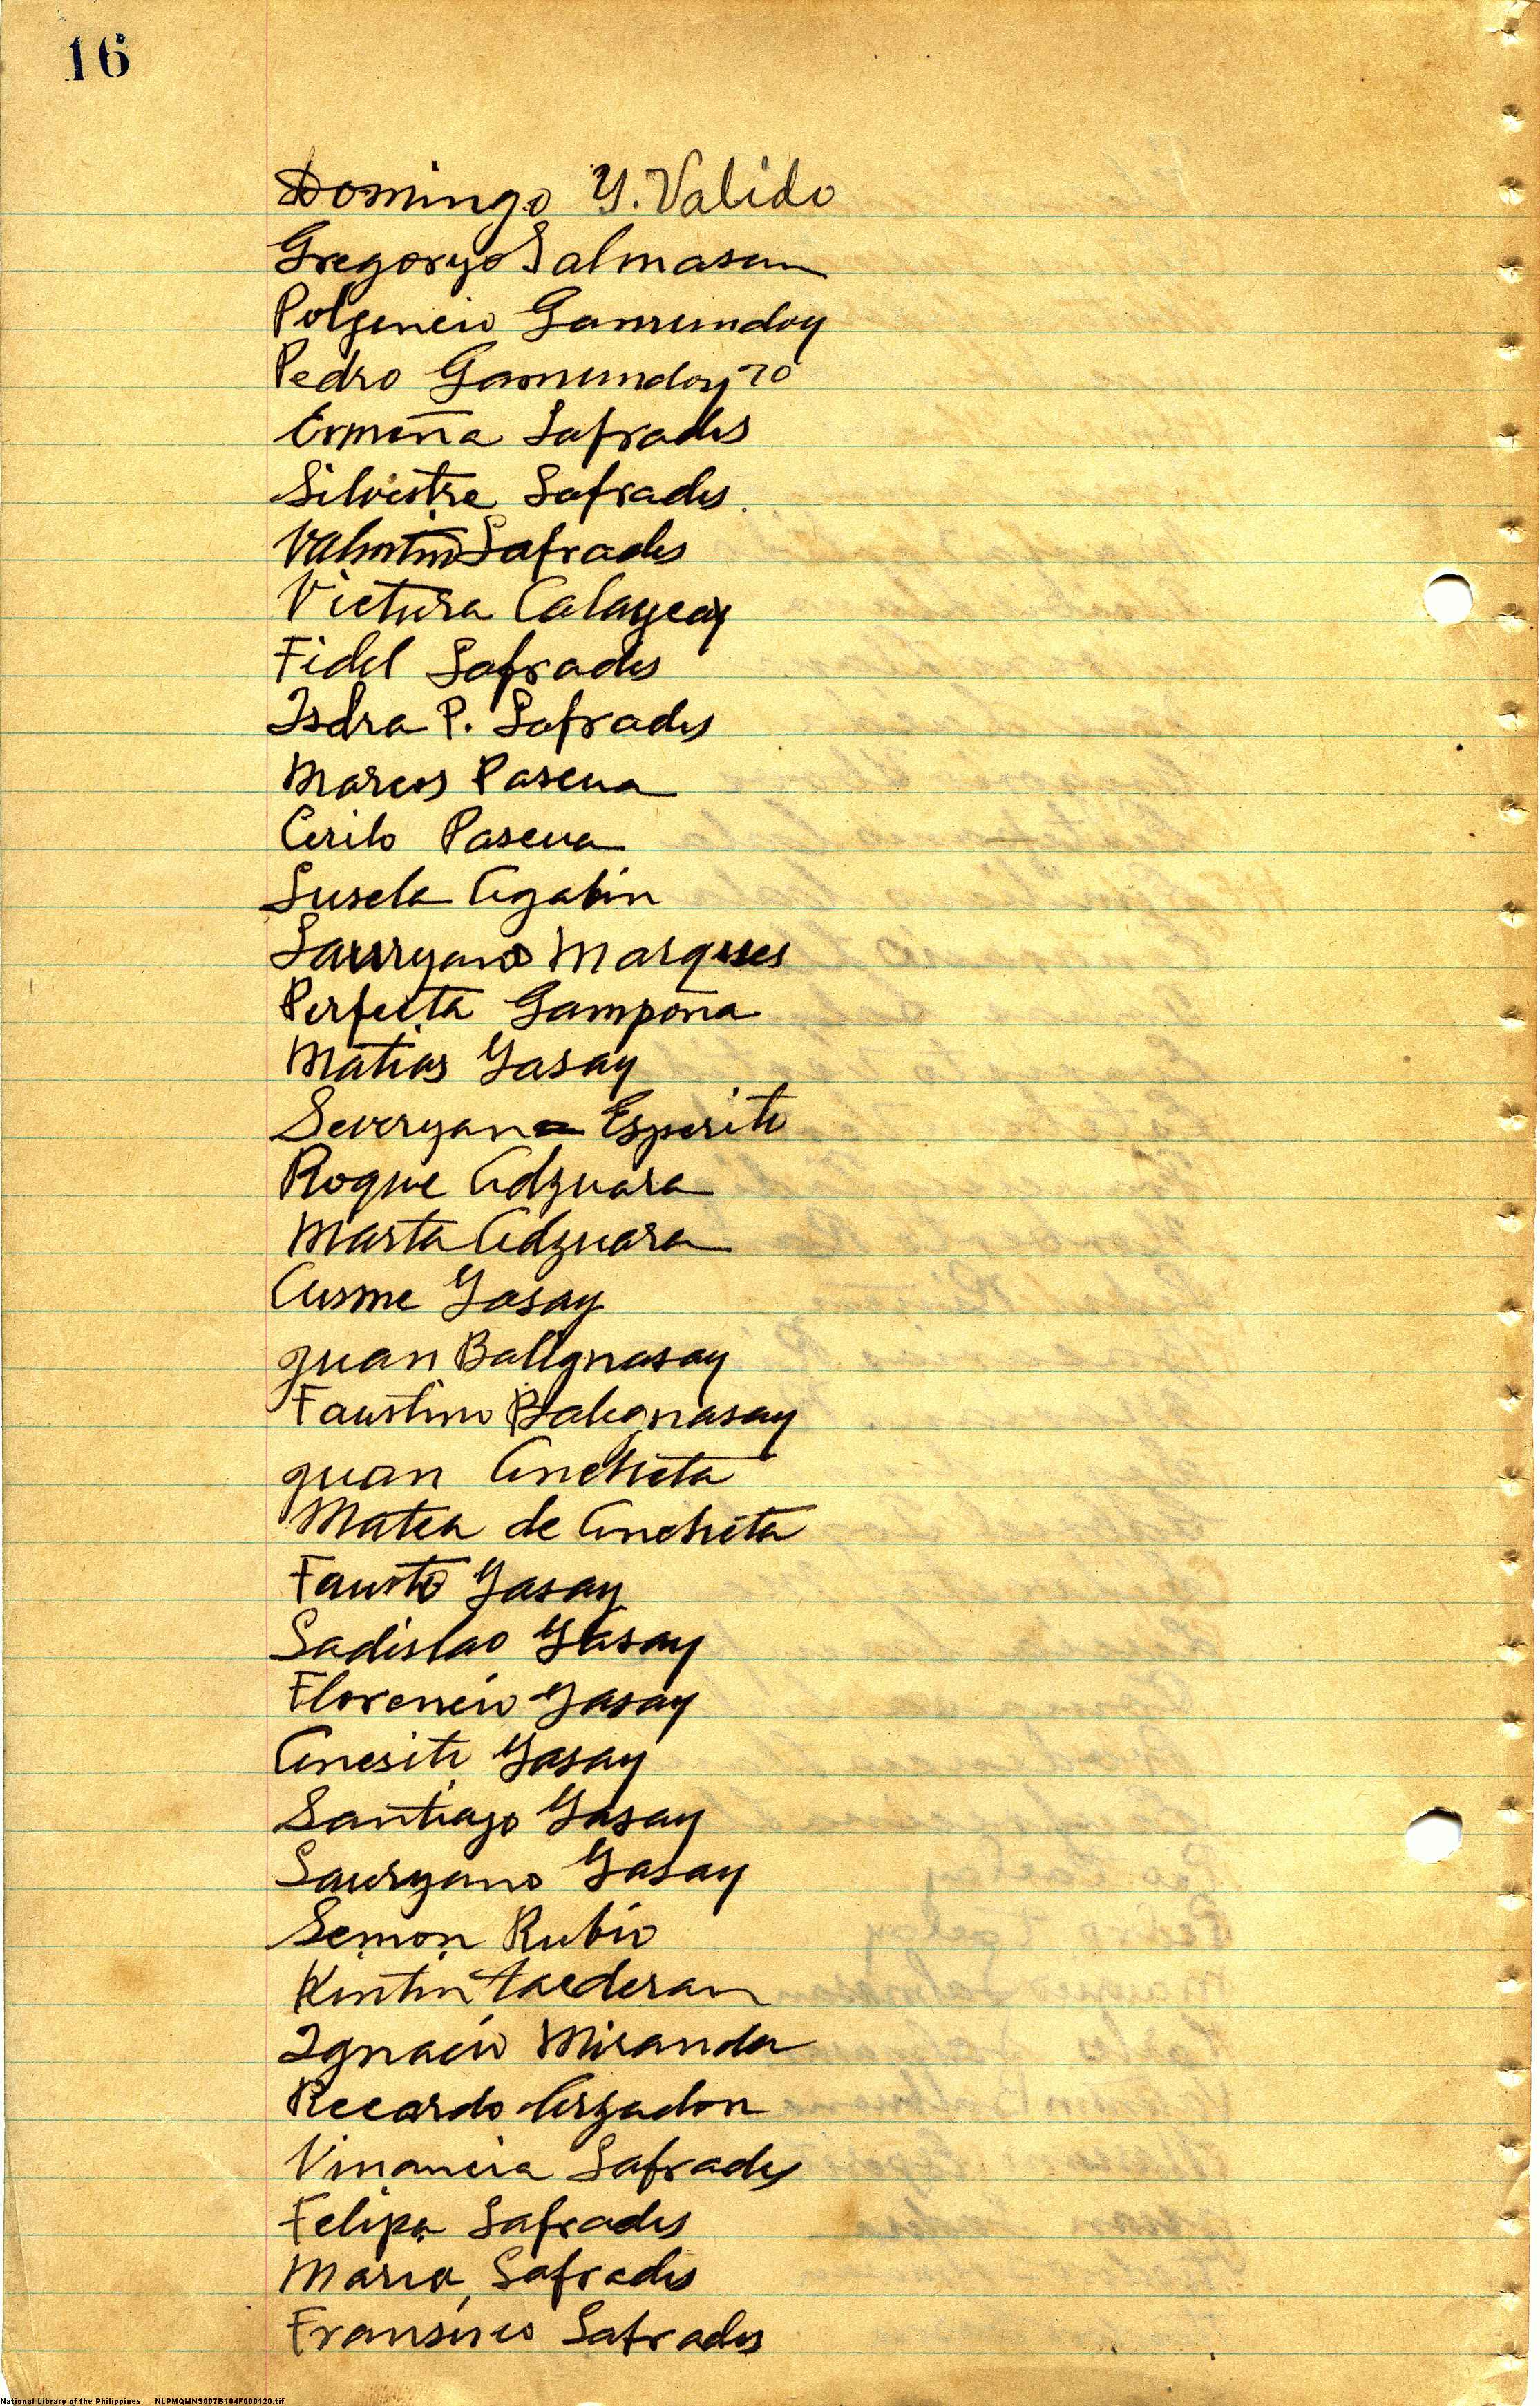 16
Domingo Y. Valido
Gregoryo Salmasan
Polgencio Gamunday
Pedro Gamundoy 70
Ermena Lafrades
Silvestre Lafrades.
Valintin Lafrades
Victura Calaycay
Fidel Lafrades
Isdra P. Lafrades
Marcos Pascua
Cerilo Pascua
Lusela Agabin
Lauryano Marques
Perfecta Gampona
Matias Yasay
Severyana Esperito
Roque Adzuara
Marta Adzuara
Cusme Yasay
Juan Balignasay
Faustino Balegnasay
Juan Ancheta
Matea de Ancheta
Fausto Yasay
Ladislao Yasay
Florencio Yasay
Anesito Yasay
Santiago Yasay
Lauryano Yasay
Semon Rubio
Kintin Tacderan
Ignacio Miranda
Recardo Arzadon
Vinancia Lafrades
Felipa Lafrades
Maria Lafrades
Fransisco Lafrades
National Library of the Philippines NLPMQMNS007B104F000120.tif